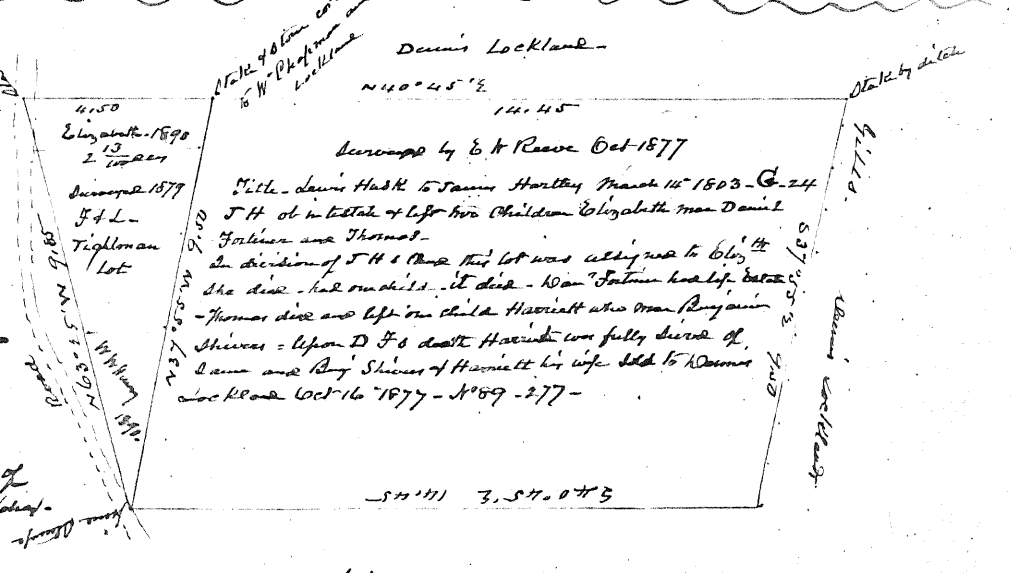 Stake & Stone
to Wm Chapman
Lockland
Dennis Lockland
N 40° 45' E
14.45
Stake by ditch
4.50
Elizabeth - 1890
2 13/100 acres
Surveyed 1879
F & L -
Tighlman
Lot
Surveyed by E W Reeve Oct 1877
Title - Lewis Husk to James Hartley March 14 1803 - G - 24
J H ob intestate & left two Children Elizabeth mar Daniel
Fortiner and Thomas -
In division of J H's this lot was assigned to Elizth
She died - had one child - it died - Danl Fortiner had life Estate
- Thomas died and left one child Harriett who mar Benjamin
Shivers = Upon D F's death Harriett was fully seized of
same and Benj Shivers & Harriett his wife sold to Dennis
Lockland Oct 16 1877 - No 89 - 277 -
N 37° 55' W 9.50
S 37° 55' E
Dennis Lockland
Road
1890
S 40° 45' E 14.45